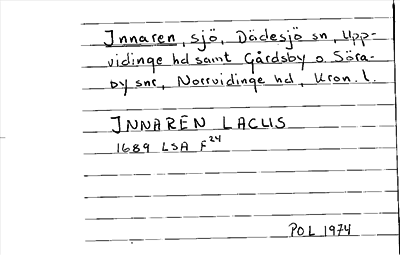 Innaren, sjö, Dädesjö sn, Upp-
vidinge hd samt Gårdsby o. Söra-
by snr, Norrvidinge hd, Kron. l.
INNAREN LACUS
1689 LSA F24
POL 1974